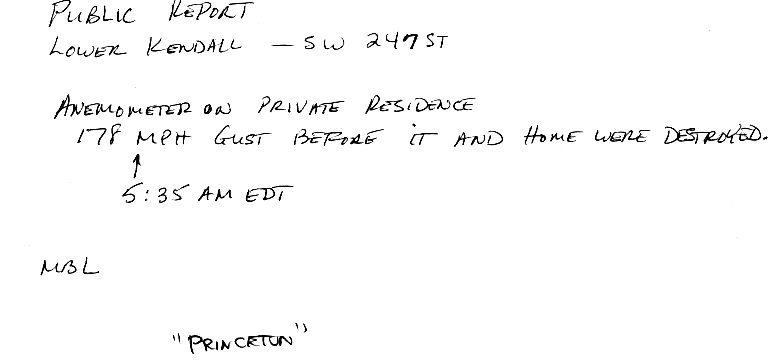 PUBLIC REPORT
LOWER KENDALL — SW 247 ST
ANEMOMETER ON PRIVATE RESIDENCE
178 MPH GUST BEFORE IT AND HOME WERE DESTROYED.
↑
5:35 AM EDT
MBL
"PRINCETON"